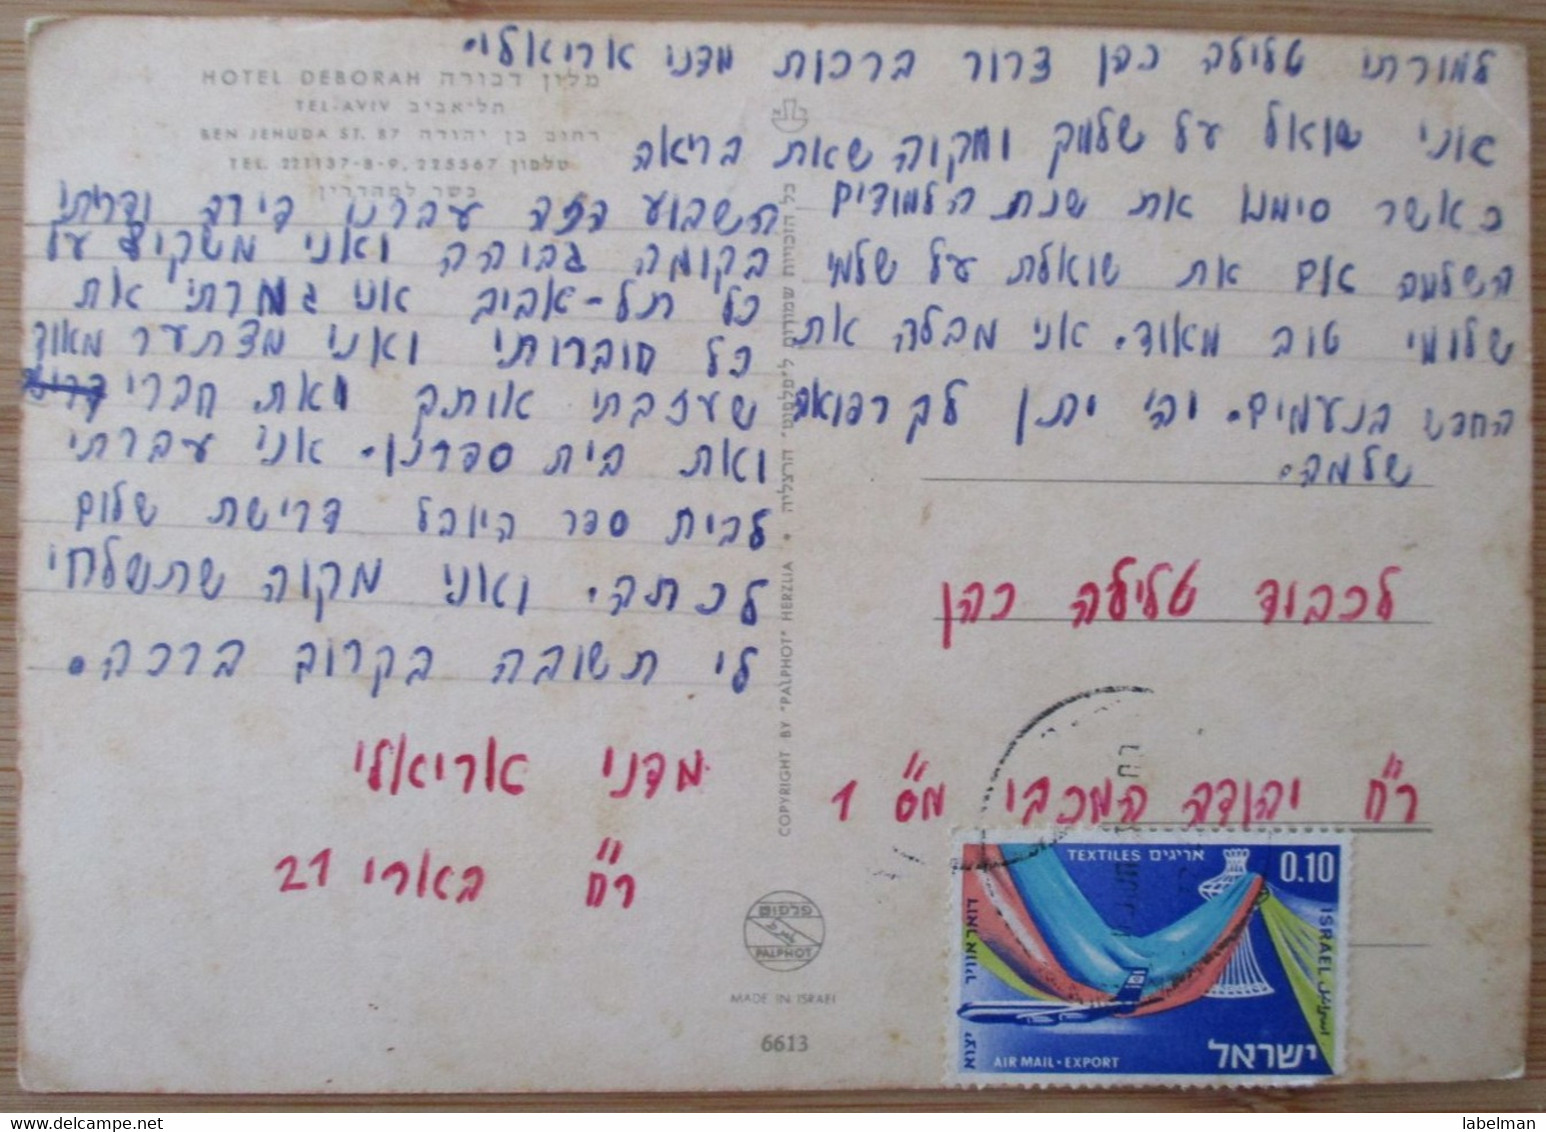 למורתי טלילה כהן דרור ברכות מדני אריאלי.
אני שואל על שלומך ומקוה שאת בריאה
כאשר סימנו את שנת הלמודים
השלמה אם את שואלת על שלמי
שלומי טוב מאוד. אני מבלה את
החפש בנעמים. וה׳ יתן לך רפואה
שלמה.
השבוע הזה עברנו דירה ודירתי
בקומה גבוהה ואני משקיף על
כל תל-אביב אני גמרתי את
כל חוברותי ואני מצטער מאוד
שעזבתי אותך ואת חברי
ואת בית ספרנו. אני עברתי
לבית ספר היובל דרישת שלום
לכתה. ואני מקוה שתשלחי
לי תשובה בקרוב ברכה.
מדני אריאלי
רח״ בארי 21
לכבוד טלילה כהן
רח״ יהודה המכבי מס״ 1
HOTEL DEBORAH מלון דבורה
TEL-AVIV תל-אביב
BEN JEHUDA ST. 87 רחוב בן יהודה
TEL. 221137-8-9, 225567 טלפון
כשר למהדרין
COPYRIGHT BY "PALPHOT" HERZLIA • כל הזכויות שמורות ל"פלפוט" הרצליה
פלפוט
PALPHOT
MADE IN ISRAEL
6613
TEXTILES אריגים
0.10
דואר אוויר
יצוא
ISRAEL اسرائيل
AIR MAIL • EXPORT
ישראל
labelman www.delcampe.net